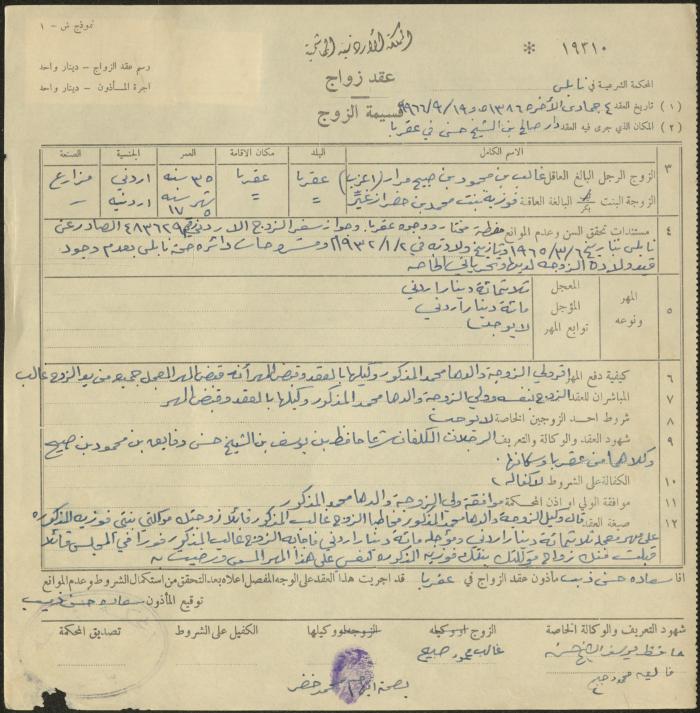 نموذج ش - ١
المملكة الأردنية الهاشمية
١٩٣١٠ *
رسم عقد الزواج - دينار واحد
اجرة المأذون - دينار واحد
عقد زواج
المحكمة الشرعية في نابلس
قسيمة الزوج
(١) تاريخ العقد ٤ جمادى الآخرة ١٣٨٦ و ١٩/٩/١٩٦٦
(٢) المكان الذي جرى فيه العقد دار صالح بن الشيخ حسن في عقربا
الاسم الكامل البلد مكان الاقامة العمر الجنسية الصنعة
٣ الزوج الرجل البالغ العاقل غالب بن محمود بن صبيح مرار (اعزب) عقربا عقربا ٣٥ سنة اردني مزارع
الزوجة البنت البالغة العاقلة فوزية بنت محمد بن خضر = = شهر سنة ٥ ١٧ اردنية -
٤ مستندات تحقق السن وعدم الموانع مضبطة مختار ووجوه عقربا وجواز سفر الزوج الاردني رقم ٤٨٣٦٢٩ الصادر عن
نابلس بتاريخ ٦/٣/١٩٦٥ وتاريخ ولادته في ٢/١/١٩٣٢ ومشروحات دائرة صحة نابلس بعدم وجود
قيد ولادة الزوجة لديها
٥ المهر ونوعه
المعجل ثلاثماية دينار اردني
المؤجل ماية دينار اردني
توابع المهر لا يوجد
٦ كيفية دفع المهر اقر ولي الزوجة والدها محمد المذكور وكيلها بالعقد وقبض المهر أنه قبض المهر المعجل جميعه من يد الزوج غالب
٧ المباشران للعقد الزوج بنفسه وولي الزوجة والدها محمد المذكور وكيلها بالعقد وقبض المهر
٨ شروط احد الزوجين الخاصة لا يوجد
٩ شهود العقد والوكالة والتعريف الرجلان المكلفان شرعا حافظ بن يوسف بن الشيخ حسن وفايق بن محمود بن صبيح
وكلاهما من عقربا وسكانها
١٠ الكفالة على الشروط لا كفالة
١١ موافقة الولي او اذن المحكمة موافقة ولي الزوجة والدها محمد المذكور
١٢ صيغة العقد قال وكيل الزوجة والدها محمد المذكور مخاطبا الزوج غالب المذكور قائلا زوجتك موكلتي بنتي فوزية المذكورة
على مهر معجله ثلاثماية دينار اردني ومؤجله ماية دينار اردني فاجابه الزوج غالب المذكور فورا في المجلس قائلا
قبلت منك زواج موكلتك بنتك فوزية المذكورة لنفسي على هذا المهر المسمى ورضيت به
انا سعاده حسن ذيب مأذون عقد الزواج في عقربا قد اجريت هذا العقد على الوجه المفصل اعلاه بعد التحقق من استكمال الشروط وعدم الموانع
توقيع المأذون سعاده حسن ذيب
شهود التعريف والوكالة الخاصة الزوج او وكيله الزوجة او وكيلها الكفيل على الشروط تصديق المحكمة
حافظ يوسف الشيخ حسن غالب محمود صبيح
فايق محمود صبيح بصمة ابهام محمد خضر